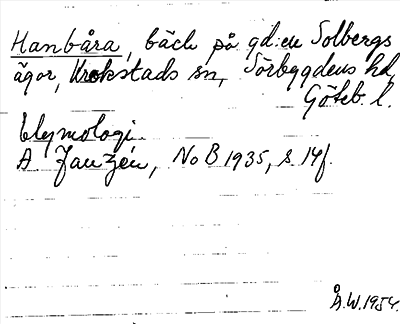 Hanbåra, bäck på gd:en Solbergs
ägor, Krokstads sn, Sörbygdens hd,
Göteb. l.
Etymologi.
A Janzén, NoB 1935, s 14f.
Å.W. 1954.